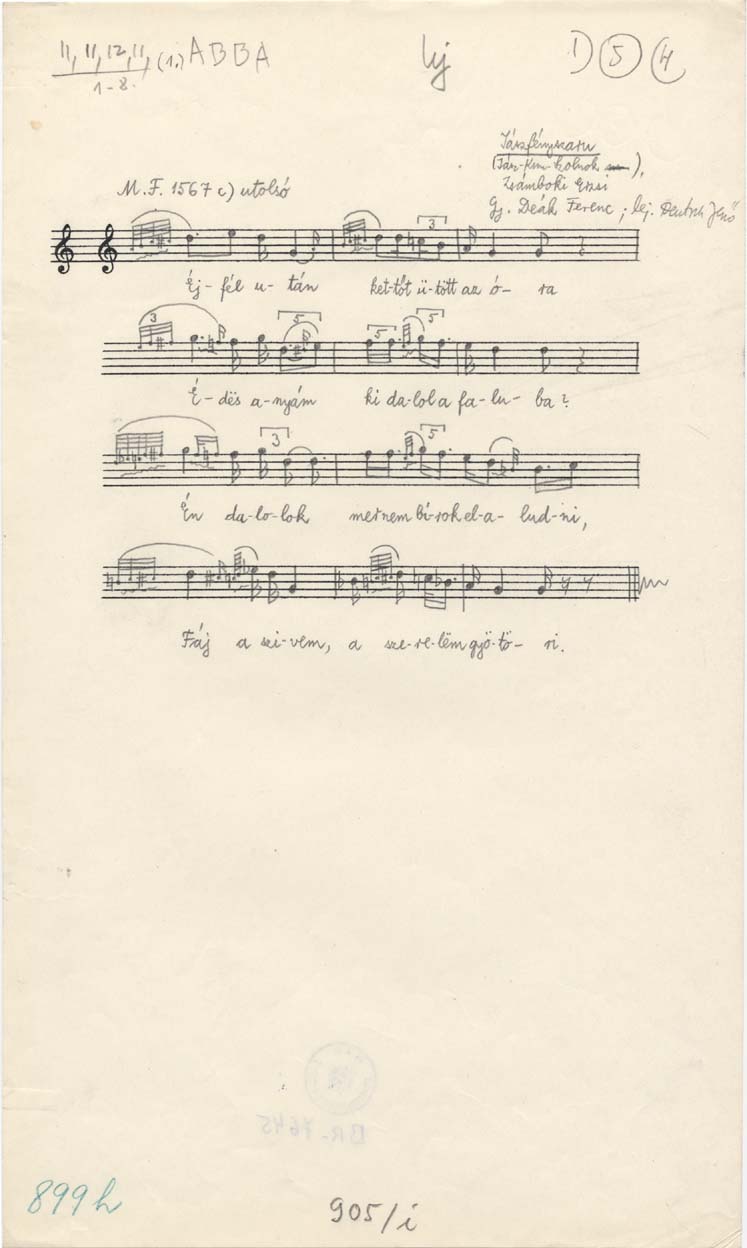 11, 11, 12, 11, (1.) A B B A
1-8.
új
1) 5 (4
Jászfényszaru
(Jász-Kun-Szolnok),
Zsámboki Erzsi
Gj. Deák Ferenc; lej. Deutsch Jenő
M. F. 1567 c) utolsó
3
Éj-fél u-tán ket-tőt ü-tött az ó- ra
3 5 5 5
É-dës a-nyám ki da-lol a fa-lu- ba?
3 5
Én da-lo-lok mer nem bí-rok el-a-lud-ni,
Fáj a szi-vem, a sze-re-lëm gyö-tö- ri.
BR-7645
899 h
905/i